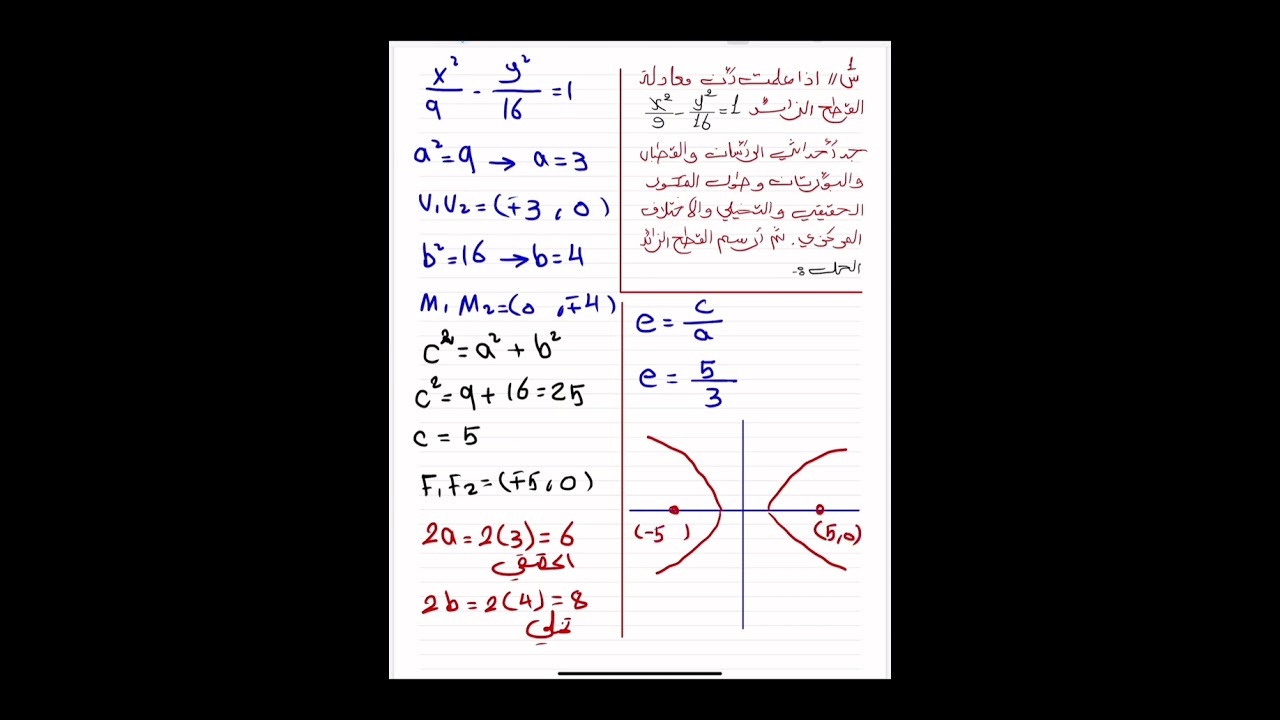 س1// اذا علمت أن معادلة
القطع الزائد x²/9 - y²/16 = 1
جد أحداثي الرأسان والقطبان
والبؤرتان وطول المحور
الحقيقي والتخيلي والاختلاف
المركزي. ثم أرسم القطع الزائد
الحل :-
x²/9 - y²/16 = 1
a² = 9 → a = 3
V₁V₂ = (∓3, 0)
b² = 16 → b = 4
M₁M₂ = (0, ∓4)
c² = a² + b²
c² = 9 + 16 = 25
c = 5
F₁F₂ = (∓5, 0)
2a = 2(3) = 6
الحقيقي
2b = 2(4) = 8
e = c/a
e = 5/3
(-5 )
(5,0)